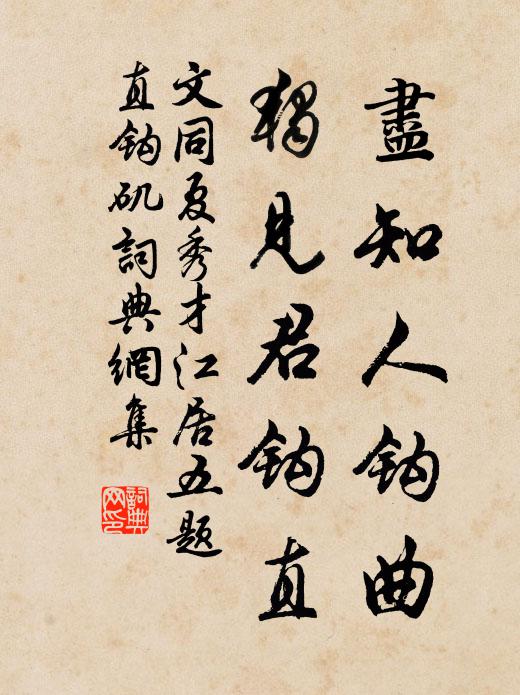 盡知人鈎曲
獨見君鈎直
文同夏秀才江居五题
直鈎矶詞典網集
詞典网印